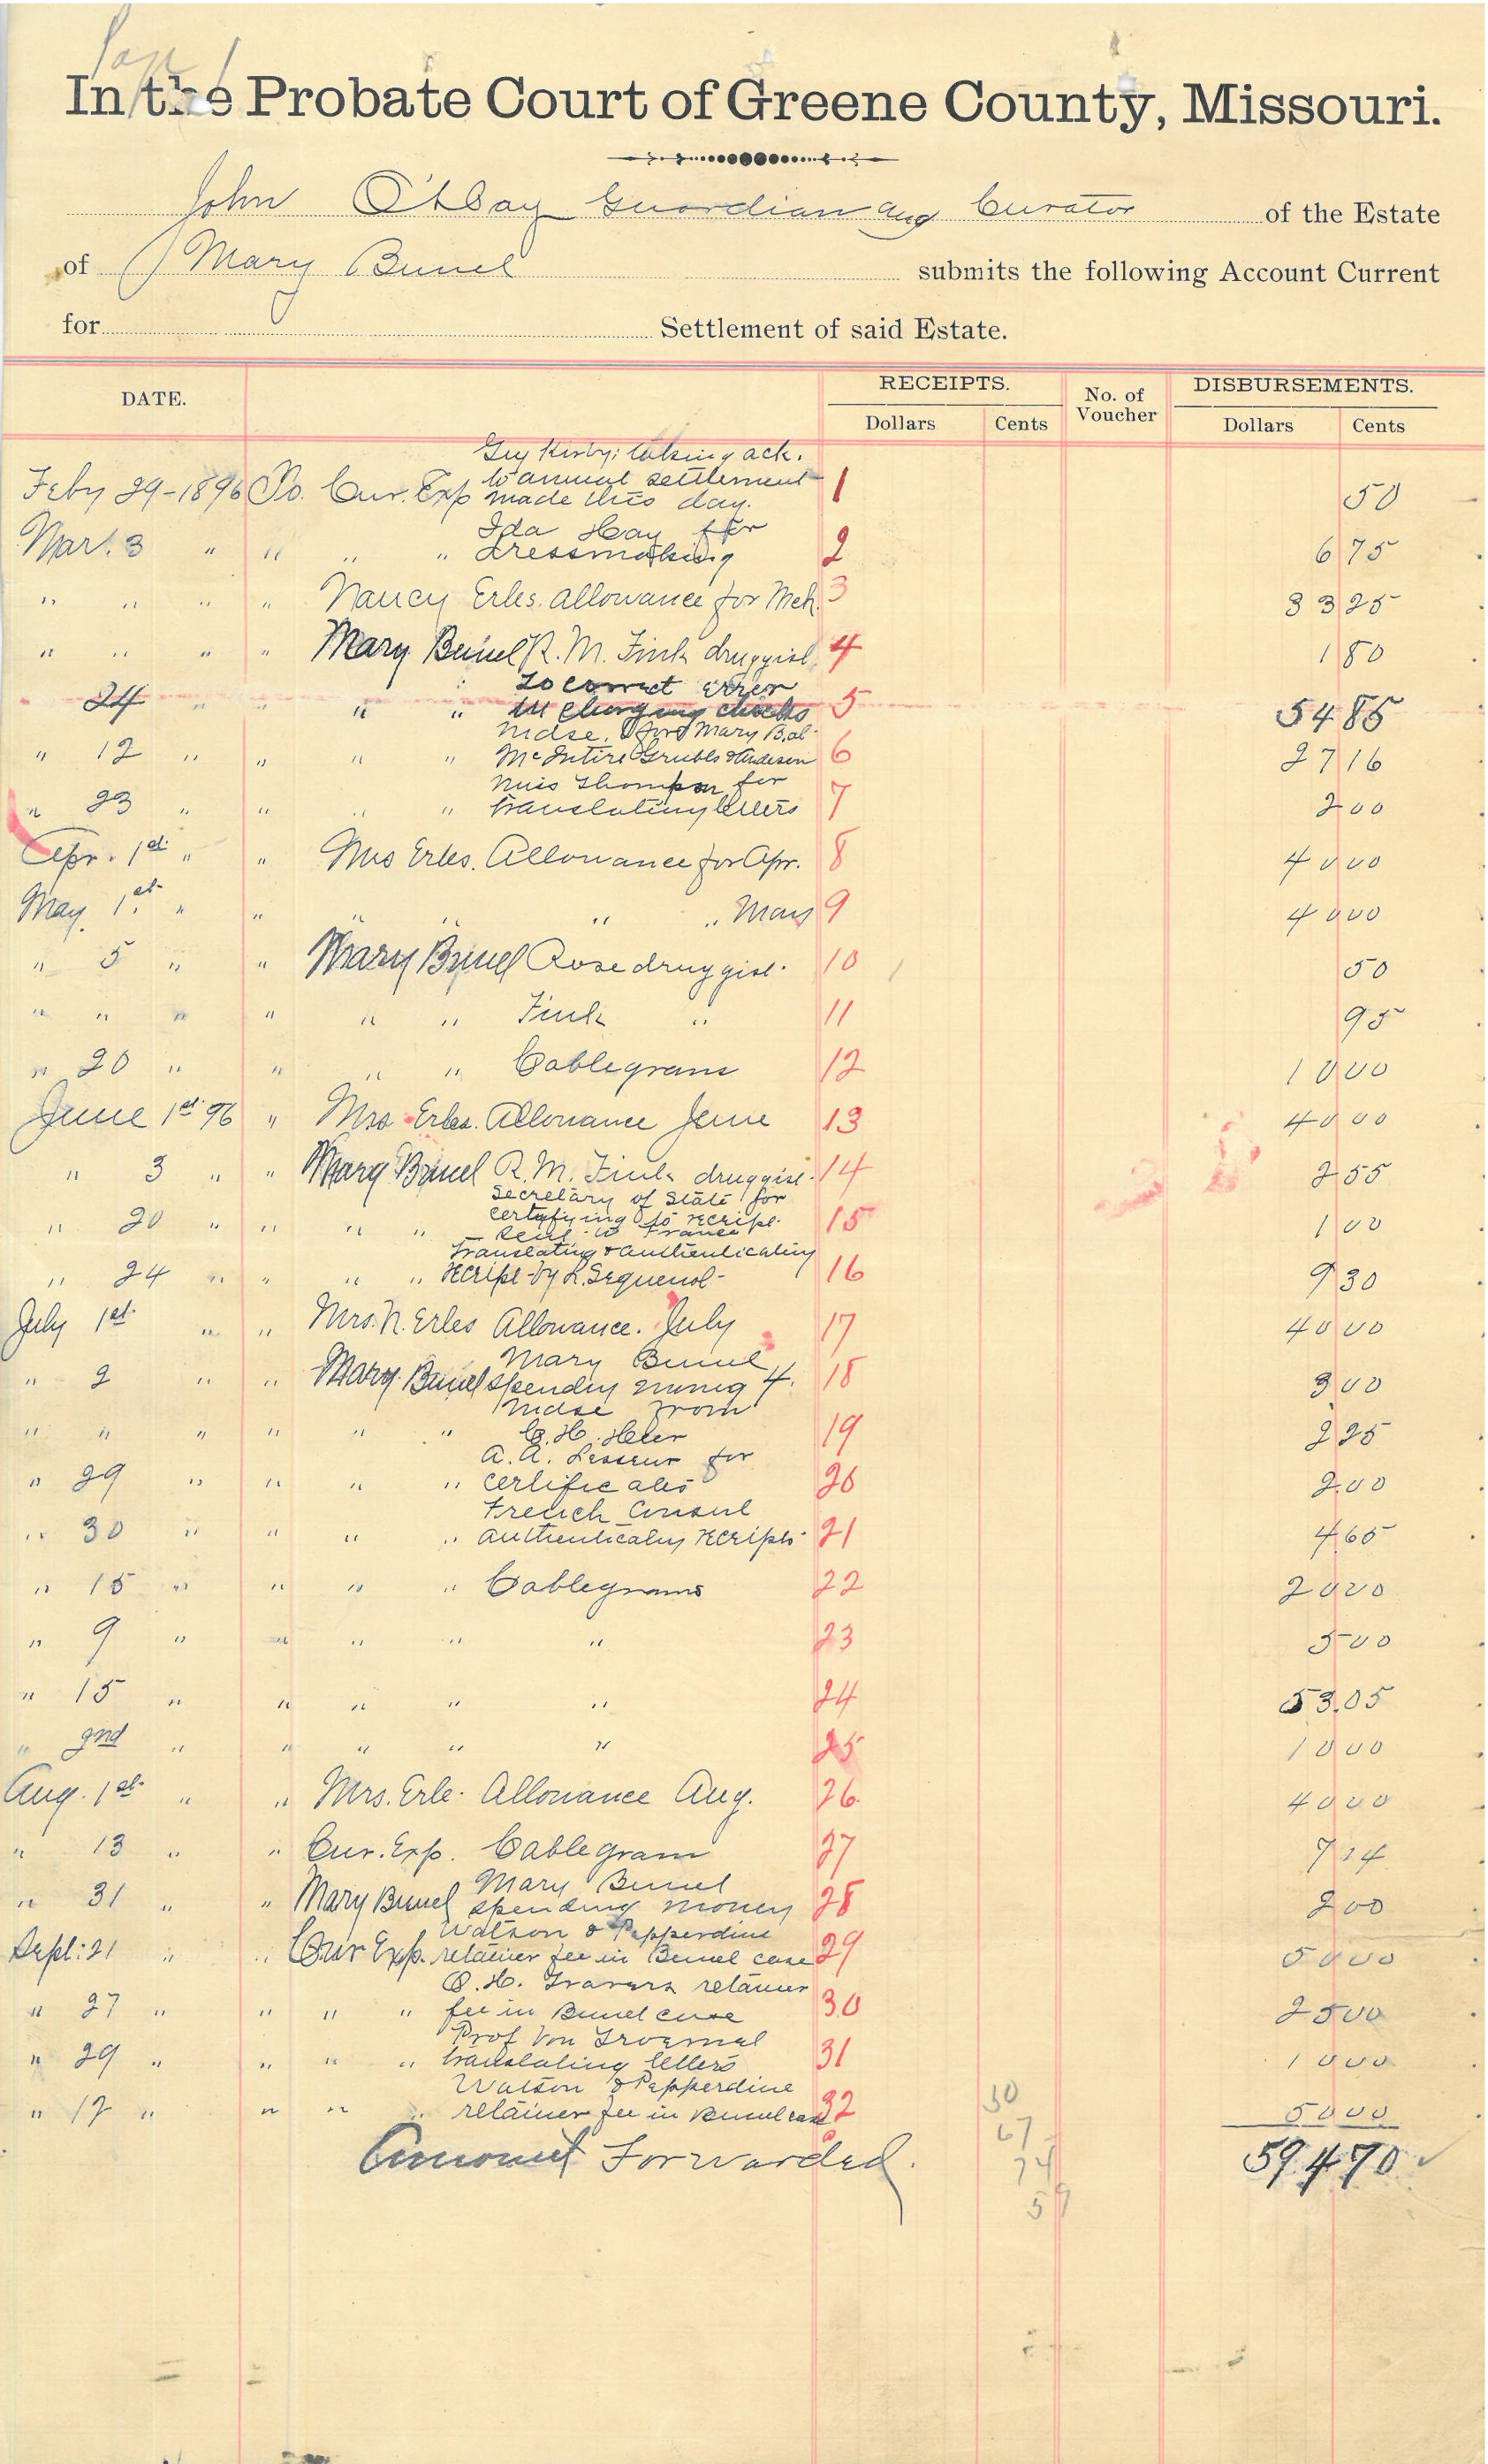 Pag 1
In the Probate Court of Greene County, Missouri.
John O'Day Guardian and Curator of the Estate
of Mary Bunel submits the following Account Current
for Settlement of said Estate.
DATE. RECEIPTS. No. of Voucher DISBURSEMENTS.
Dollars Cents Dollars Cents
Guy Kirby; taking ack.
to annual settlement
Feby 29-1896 To. Cur. Exp made this day. 1 50
Ida Hay for
Mar. 3 " " " " dressmaking 2 6 75
" " " " Nancy Erbes. allowance for Mch. 3 33 25
" " " " Mary Bunel R. M. Fink druggist. 4 1 80
To correct error
24 " " " " in charging checks 5 54 85
mdse. for Mary B. at
" 12 " " " " McIntire Grubbs & Anderson 6 27 16
Miss Thompson for
" 23 " " " " translating letters 7 2 00
Apr. 1st " " Mrs Erbes. Allowance for Apr. 8 40 00
May. 1st " " " " " " May 9 40 00
" 5 " " Mary Bunel Rose druggist. 10 50
" " " " " " Fink " 11 95
" 20 " " " " Cablegrams 12 10 00
June 1st 96 " Mrs Erbes. Allowance June 13 40 00
" 3 " " Mary Bunel R. M. Fink druggist. 14 2 55
Secretary of State for
certifying to receipt
" 20 " " " " sent to France 15 1 00
Translating & authenticating
" 24 " " " " receipt by L. Seguenot 16 9 30
July 1st " " Mrs. N. Erbes Allowance. July 17 40 00
Mary Bunel
" 2 " " Mary Bunel spending money 4. 18 3 00
Mdse from
" " " " " " C. H. Heer 19 2 25
A. A. Lesueur for
" 29 " " " " certificates 20 2.00
French Consul
" 30 " " " " authenticating receipts 21 4 65
" 15 " " " " Cablegrams 22 20 20
" 9 " " " " " 23 5 00
" 15 " " " " " 24 53.05
" 2nd " " " " " 25 10 00
Aug. 1st " " Mrs. Erbe. Allowance Aug. 26 40 00
" 13 " " Cur. Exp. Cablegram 27 7 14
Mary Bunel
" 31 " " Mary Bunel spending money 28 2 00
Watson & Pepperdine
Sept: 21 " " Cur Exp. retainer fee in Bunel case 29 50 00
O. H. Travers retainer
" 27 " " " " fee in Bunel case 30 25 00
Prof Von
" 29 " " " " translating letters 31 10 00
Watson & Pepperdine
" 17 " " " " retainer fee in Bunel case 32 50 00
Amount Forwarded. 594 70
30
67
74
59